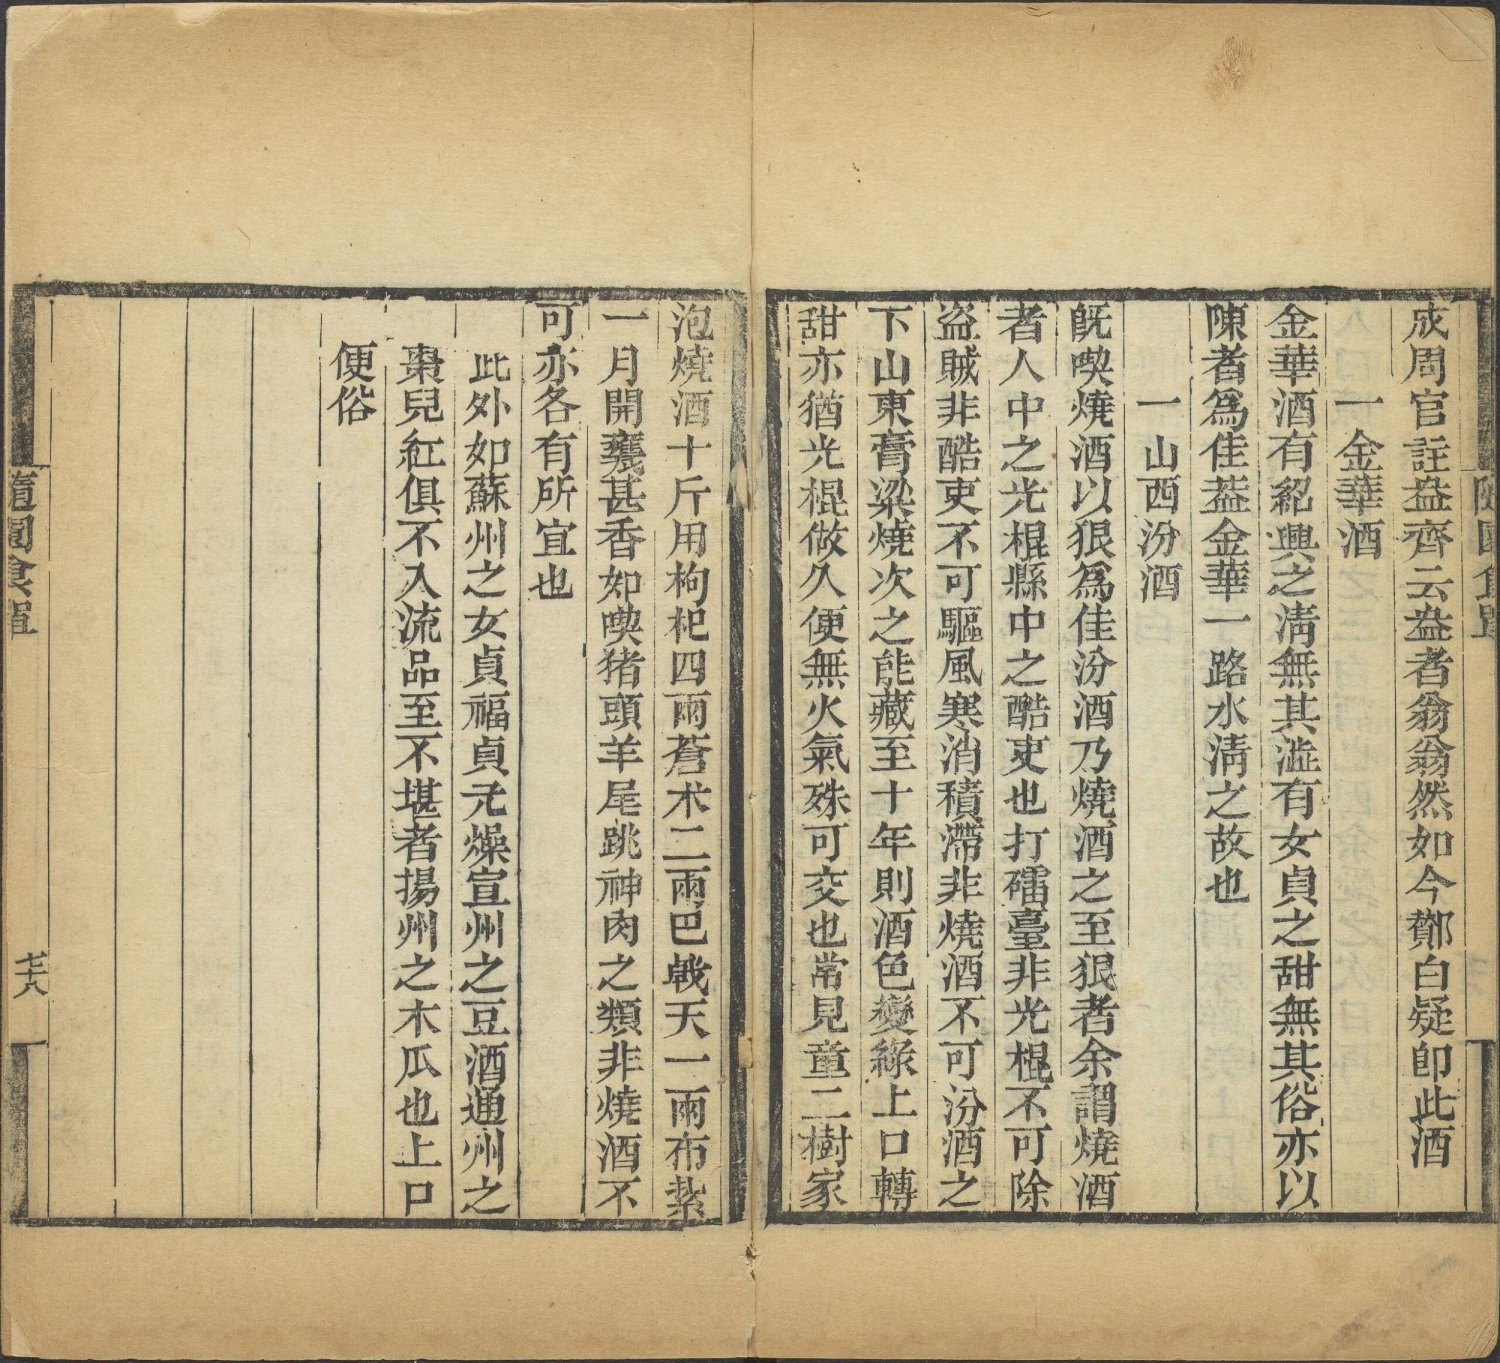 成周官註盎齊云盎者翁翁然如今酇白疑卽此酒
一金華酒
金華酒有紹興之淸無其澁有女貞之甜無其俗亦以
陳者爲佳葢金華一路水淸之故也
一山西汾酒
旣喫燒酒以狠爲佳汾酒乃燒酒之至狠者余謂燒酒
者人中之光棍縣中之酷吏也打礌臺非光棍不可除
盗賊非酷吏不可驅風寒消積滯非燒酒不可汾酒之
下山東膏粱燒次之能藏至十年則酒色變綠上口轉
甜亦猶光棍做久便無火氣殊可交也常見童二樹家
泡燒酒十斤用枸杞四兩蒼术二兩巴戟天一兩布紮
一月開甕甚香如喫猪頭羊尾跳神肉之類非燒酒不
可亦各有所宜也
此外如蘇州之女貞福貞元燥宣州之豆酒通州之
棗兒紅俱不入流品至不堪者揚州之木瓜也上口
便俗
隨園食單
七十八